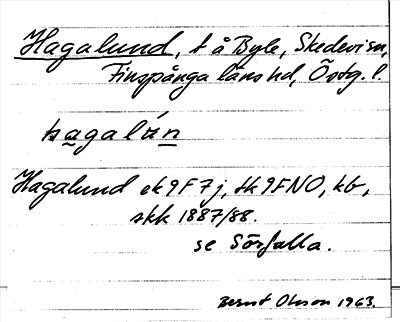 Hagalund, t å Byle, Skedevi sn,
Finspånga läns hd, Östg. l.
hagalún
Hagalund ek 9F7j, tk 9FNO, kb,
skk 1887/88.
se Sörfalla.
Bernt Olsson 1963.